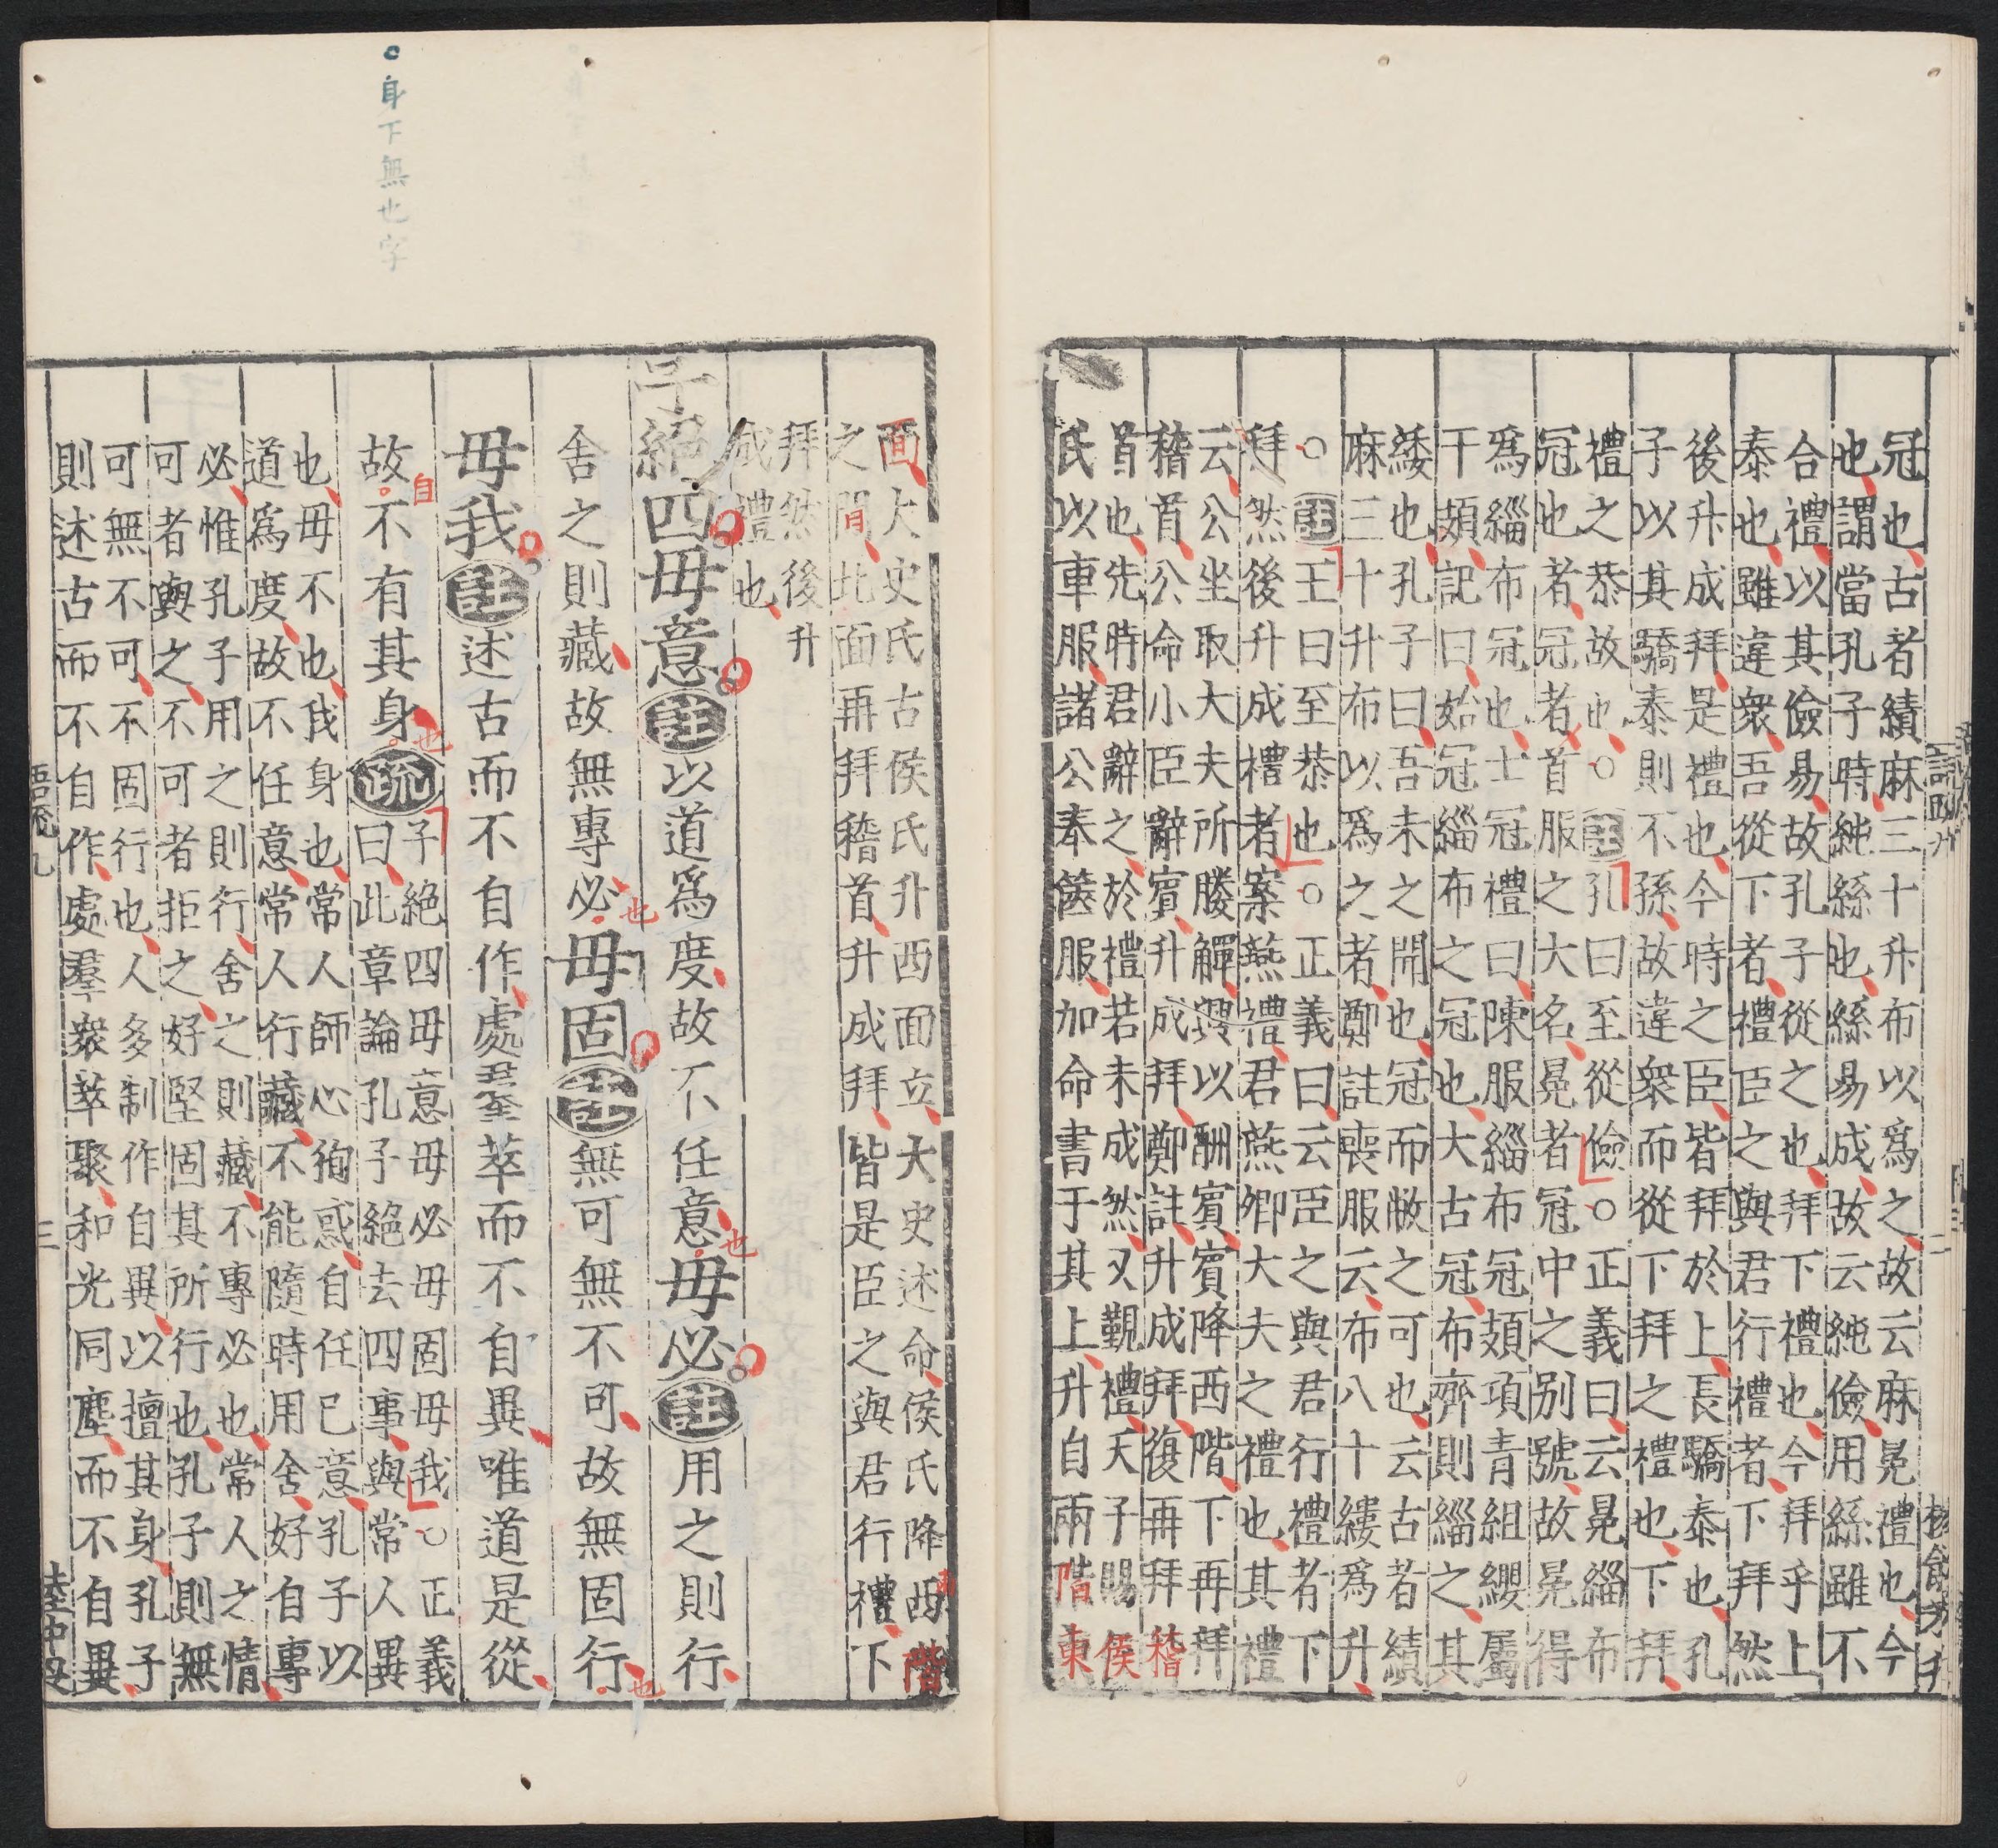 冠也古者績麻三十升布以爲之故云麻冕禮也今
也謂當孔子時純絲也絲易成故云純儉用絲雖不
合禮以其儉易故孔子從之也拜下禮也今拜乎上
泰也雖違衆吾從下者禮臣之與君行禮者下拜然
後升成拜是禮也今時之臣皆拜於上長驕泰也孔
子以其驕泰則不孫故違衆而從下拜之禮也下拜
禮之恭故也○註孔曰至從儉○正義曰云冕緇布
冠也者冠者首服之大名冕者冠中之別號故冕得
爲緇布冠也士冠禮曰陳服緇布冠頍項青組纓屬
于頍記曰始冠緇布之冠也大古冠布齊則緇之其
緌也孔子曰吾未之聞也冠而敝之可也云古者績
麻三十升布以爲之者鄭註喪服云布八十縷爲升
○註王曰至恭也○正義曰云臣之與君行禮者下
拜然後升成禮者案燕禮君燕卿大夫之禮也其禮
云公坐取大夫所媵觶興以酬賓賓降西階下再拜
稽首公命小臣辭賓升成拜鄭註升成拜復再拜稽
首也先時君辭之於禮若未成然又覲禮天子賜侯
氏以車服諸公奉篋服加命書于其上升自兩階東
面大史氏古侯氏升西面立大史述命侯氏降西階
之間北面再拜稽首升成拜皆是臣之與君行禮下
拜然後升
成禮也
子絕四毋意註以道爲度故不任意也毋必註用之則行
舍之則藏故無專必也毋固註無可無不可故無固行也
毋我註述古而不自作處羣萃而不自異唯道是從
故不自有其身也疏
子絕四毋意毋必毋固毋我○正義
曰此章論孔子絕去四事與常人異
也毋不也我身也常人師心徇惑自任己意孔子以
道爲度故不任意常人行藏不能隨時用舍好自專
必惟孔子用之則行舍之則藏不專必也常人之情
可者與之不可者拒之好堅固其所行也孔子則無
可無不可不固行也人多制作自異以擅其身孔子
則述古而不自作處羣衆萃聚和光同塵而不自異
語疏九
三
○身下無也字